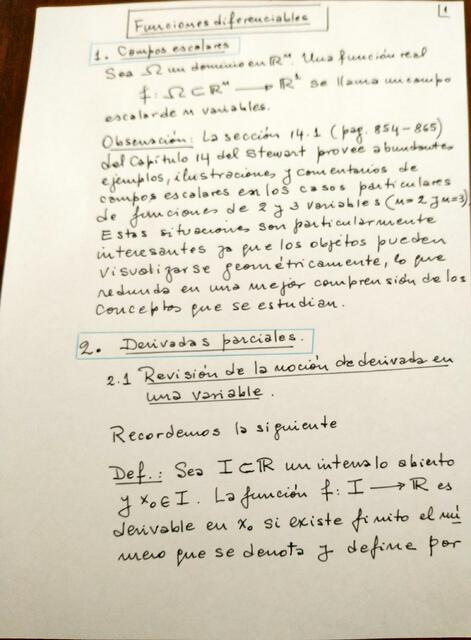 1
Funciones diferenciables
1. Campos escalares
Sea Ω un dominio en ℝⁿ. Una función real
f: Ω ⊂ ℝⁿ ⟶ ℝ¹ se llama un campo
escalar de n variables.
Observación: La sección 14.1 (pág. 854-865)
del Capítulo 14 del Stewart provee abundantes
ejemplos, ilustraciones y comentarios de
campos escalares en los casos particulares
de funciones de 2 y 3 variables (n=2 y n=3).
Estas situaciones son particularmente
interesantes ya que los objetos pueden
visualizarse geométricamente, lo que
redunda en una mejor comprensión de los
conceptos que se estudian.
2. Derivadas parciales.
2.1 Revisión de la noción de derivada en
una variable.
Recordemos la siguiente
Def.: Sea I ⊂ ℝ un intervalo abierto
y x₀ ∈ I. La función f: I ⟶ ℝ es
derivable en x₀ si existe finito el nú
mero que se denota y define por